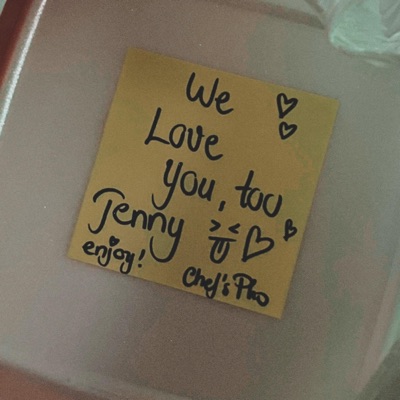 We
Love
You, too
Jenny
enjoy!
Chef's Pho